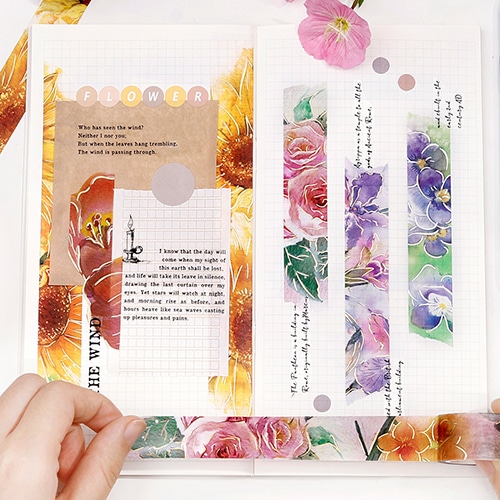 FLOWER
Who has seen the wind?
Neither I nor you;
But when the leaves hang trembling,
The wind is passing through.
I know that the day will
come when my sight of
this earth shall be lost,
and life will take its leave in silence,
drawing the last curtain over my
eyes. Yet stars will watch at night,
and morning rise as before, and
hours heave like sea waves casting
up pleasures and pains.
HE WIND
as a temple to all the
gods of Ancient Rome,
The Pantheon is a building in
Rome, originally built by
and built in the
early 2nd
century AD
with the British
building